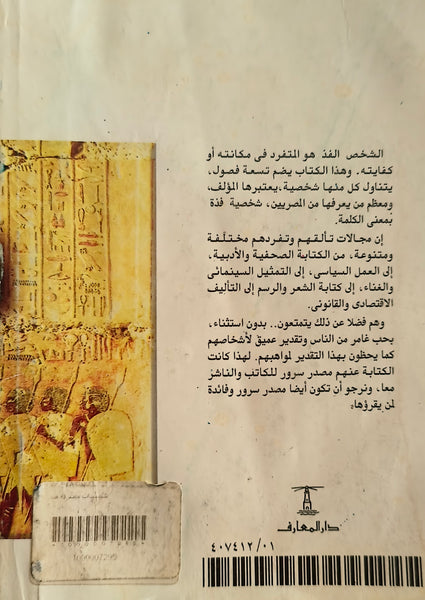 الشخص الفذ هو المتفرد فى مكانته أو
كفايته. وهذا الكتاب يضم تسعة فصول،
يتناول كل منها شخصية، يعتبرها المؤلف،
ومعظم من يعرفها من المصريين، شخصية فذة
بمعنى الكلمة.
إن مجالات تألقهم وتفردهم مختلفة
ومتنوعة، من الكتابة الصحفية والأدبية،
إلى العمل السياسى، إلى التمثيل السينمائى
والغناء، إلى كتابة الشعر والرسم إلى التأليف
الاقتصادى والقانونى.
وهم فضلا عن ذلك يتمتعون.. بدون استثناء،
بحب غامر من الناس وتقدير عميق لأشخاصهم
كما يحظون بهذا التقدير لمواهبهم. لهذا كانت
الكتابة عنهم مصدر سرور للكاتب والناشر
معا، ونرجو أن تكون أيضا مصدر سرور وفائدة
لمن يقرؤها
دار المعارف
٤٠٧٤١٢/٠١